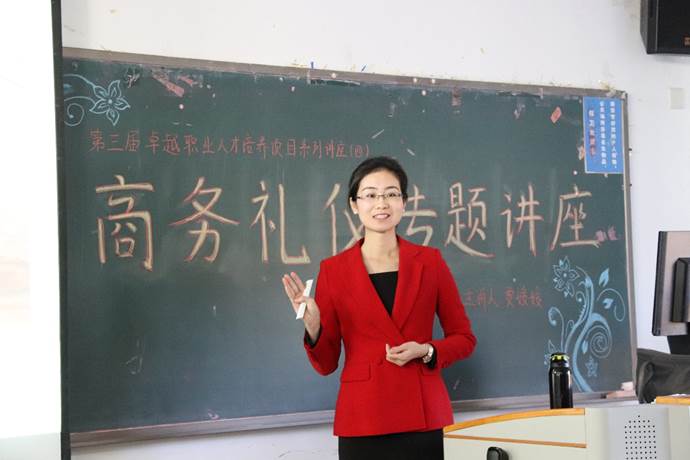 第三届卓越职业人才培养项目系列讲座(四)
商务礼仪专题讲座
主讲人 贾媛媛